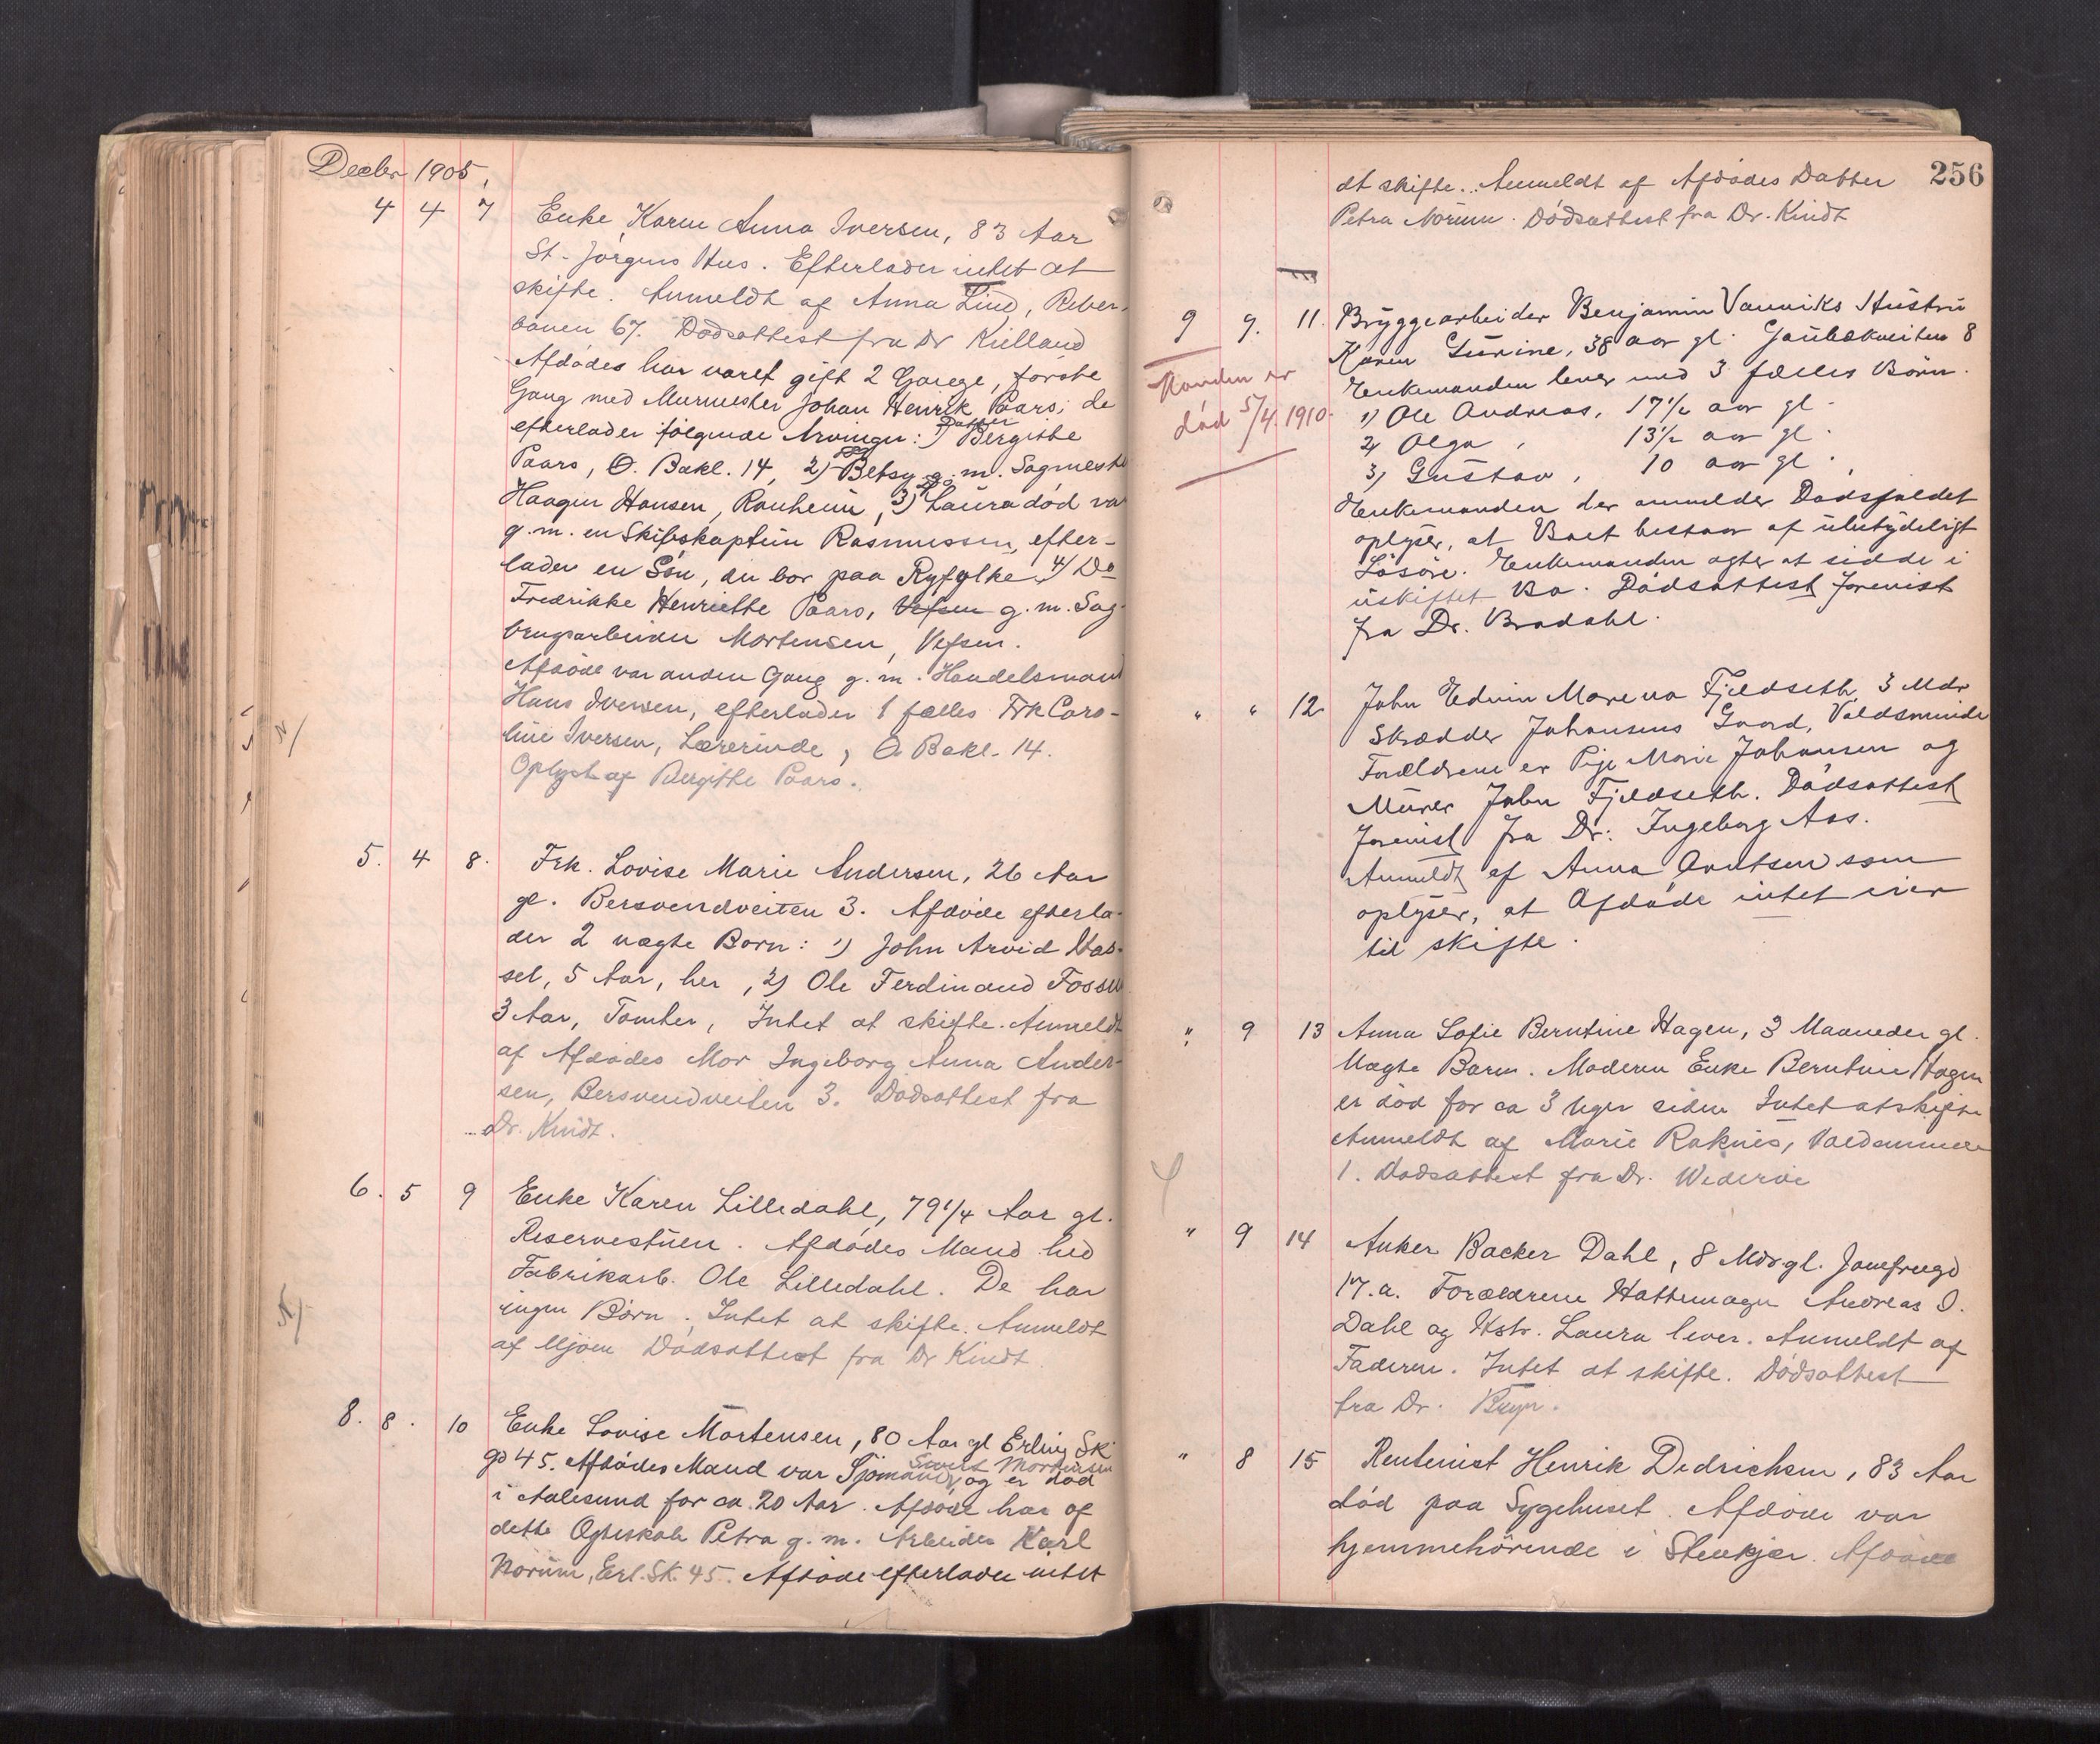 Decbr 1905,
4 4 7 Enke Karen Anna Iversen, 83 Aar
St. Jørgens Hus. Efterlader intet at
skifte. Anmeldt af Anna Lind, Reber-
banen 67. Dødsattest fra Dr Kielland
Afdødes har været gift 2 Gange, første
Gang med Murmester Johan Henrik Paars; de
efterlader følgende Arvinger: 1) Datter Bergithe
Paars, Ø. Bakl. 14, 2) Betsy g. m. Sagmester
Haagen Hansen, Ranheim, 3) Laura død var
g. m. en Skibskaptein Rasmussen, efter-
lader en Søn, der bor paa Ryfylke, 4) Do
Fredrikke Henriette Paars, Vefsen g. m. Sag-
brugsarbeider Mortensen, Vefsen.
Afdøde var anden Gang g. m. Handelsmand
Hans Iversen, efterlader 1 fælles Frk Caro-
line Iversen, Lærerinde, Ø Bakl. 14.
Oplyst af Bergithe Paars.
5. 4 8. Frk. Lovise Marie Andersen, 26 Aar
gl. Bersvendveiten 3. Afdøde efterla-
der 2 uægte Børn: 1) John Arvid Has-
sel, 5 Aar, her, 2) Ole Ferdinand Fossen
3 Aar, Tomter, Intet at skifte. Anmeldt
af Afdødes Mor Ingeborg Anna Ander-
sen, Bersvendveiten 3. Dødsattest fra
Dr. Kindt.
6. 5 9 Enke Karen Lilledahl, 79 1/4 Aar gl.
Reservestuen. Afdødes Mand hed
Fabrikarb. Ole Lilledahl. De har
ingen Børn. Intet at skifte. Anmeldt
af Mjøen Dødsattest fra Dr Kindt.
8. 8. 10 Enke Lovise Mortensen, 80 Aar gl Erling Sk
gd 45. Afdødes Mand var Sjømand Sivert Mortensen og er død
i Aalesund for ca. 20 Aar. Afdøde har af
dette Ægteskab Petra g. m. Arbeider Karl
Norum, Erl. Sk. 45. Afdøde efterlader intet
256
at skifte. Anmeldt af Afdødes Datter
Petra Norum. Dødsattest fra Dr. Kindt
9 9. 11. Bryggearbeider Benjamin Vanviks Hustru
Karen Gurine, 38 aar gl. Gaubækveiten 8
Enkemanden lever med 3 fælles Børn.
Manden er
død 5/4. 1910.
1) Ole Andreas, 17 1/2 aar gl.
2) Olga, 13 1/2 aar gl.
3) Gustav, 10 aar gl.
Enkemanden der anmelder Dødsfaldet
oplyser, at Boet bestaar af ubetydeligt
Løsøre. Enkemanden agter at sidde i
uskiftet Bo. Dødsattest forevist
fra Dr. Bradahl.
" " 12. John Edvin Marena Fjeldseth, 3 Mdr
Skrædder Johansens Gaard, Voldsminde
Forældrene er Pige Marie Johansen og
Murer John Fjeldseth. Dødsattest
forevist fra Dr. Ingeborg Aas.
Anmeldt af Anna Arntsen som
oplyser, at Afdøde intet eier
til skifte.
" 9 13 Anna Sofie Berntine Hagen, 3 Maaneder gl.
Uægte Barn. Moderen Enke Berntine Hagen
er død for ca 3 Uger siden Intet at skifte
Anmeldt af Marie Raknes, Voldsminde
1. Dødsattest fra Dr. Widerøe
" 9 14 Anker Backer Dahl, 8 Mdr gl. Jomfrugd
17. a. Forældrene Hattemager Andreas O.
Dahl og Hstr. Laura lever. Anmeldt af
Faderen. Intet at skifte. Dødsattest
fra Dr.
" 8 15 Rentenist Henrik Dedrichsen, 83 Aar
død paa Sygehuset. Afdøde var
hjemmehørende i Stenkjær. Afdøde